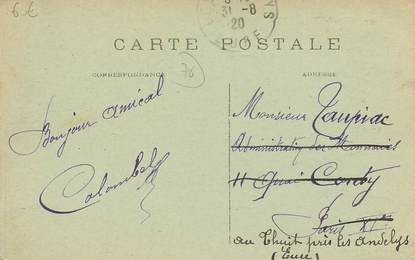 6€
31-8
20
EURE
CARTE POSTALE
CORRESPONDANCE
78
ADRESSE
Bonjour amical
Colombel
Monsieur Taupiac
Administration des Monnaies
11 Quai Conty
Paris
au Thuit près les Andelys
(Eure)